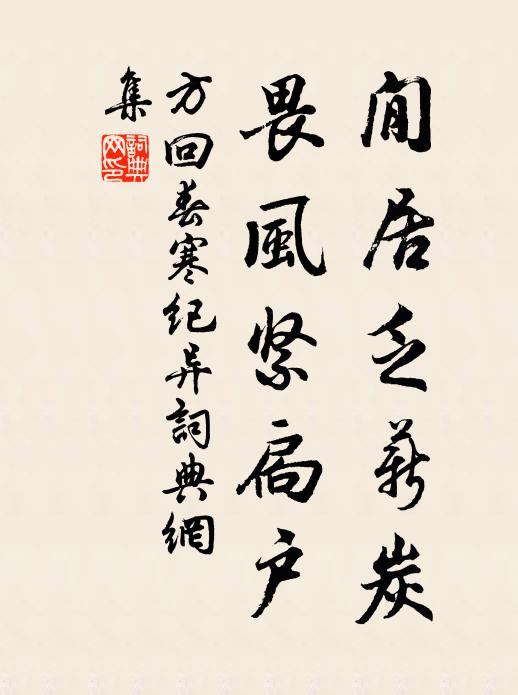 閒居乏薪炭
畏風緊扃户
方回春寒纪异詞典網
集
詞典網印